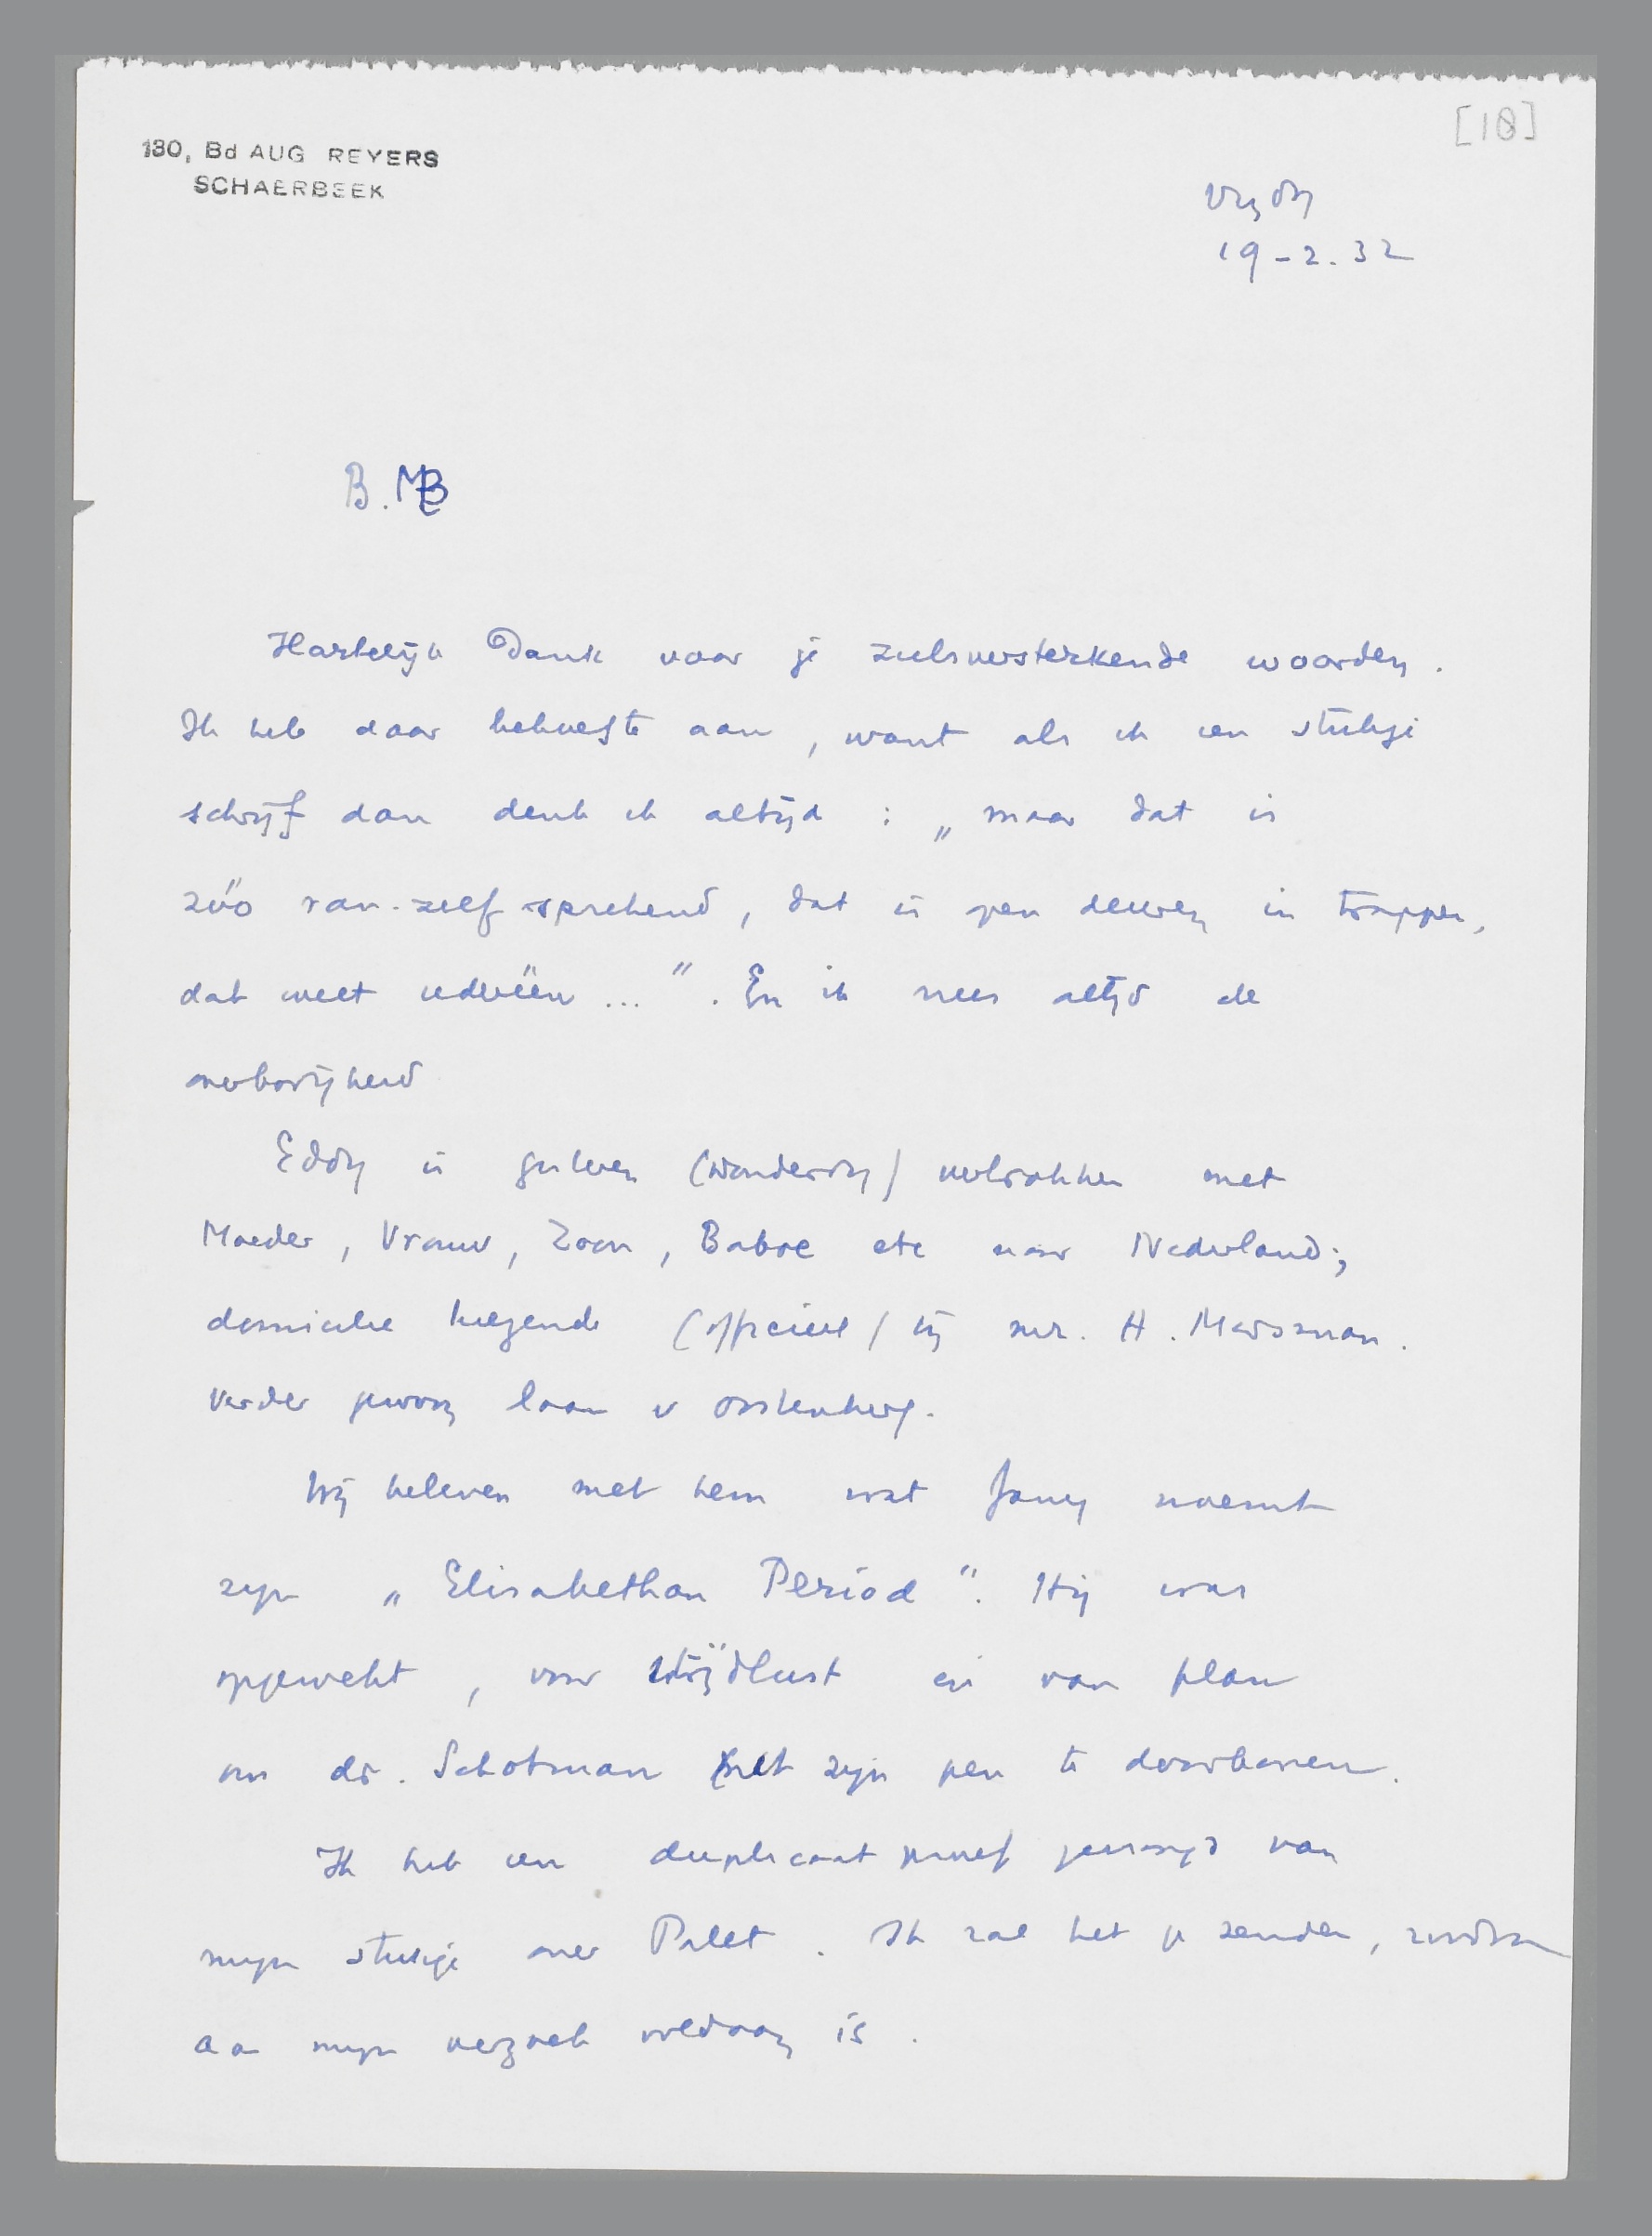 [18]
130, Bd AUG REYERS
SCHAERBEEK
Vrijdag
19-2.32
B. MB
Hartelijk Dank voor je zielsversterkende woorden.
Ik heb daar behoefte aan, want als ik een stukje
schrijf dan denk ik altijd : „maar dat is
zóó van-zelf sprekend, dat is open deuren in trappen,
dat weet iedereen ...". En ik vrees altijd de
overbodigheid
Eddy is gisteren (donderdag) vertrokken met
Moeder, Vrouw, Zoon, Baboe etc naar Nederland;
domicilie kiezende (officieel) bij mr. H. Marsman.
Verder gewoon laan v Oostenburg.
Wij beleven met hem wat Jany noemt
zijn „Elisabethan Period". Hij was
opgewekt, vol strijdlust en van plan
om dr. Schotman met zijn pen te doorboren.
Ik heb een duplicaat proef gevraagd van
mijn stukje over Palet. Ik zal het je zenden, zoodra
aan mijn verzoek voldaan is.